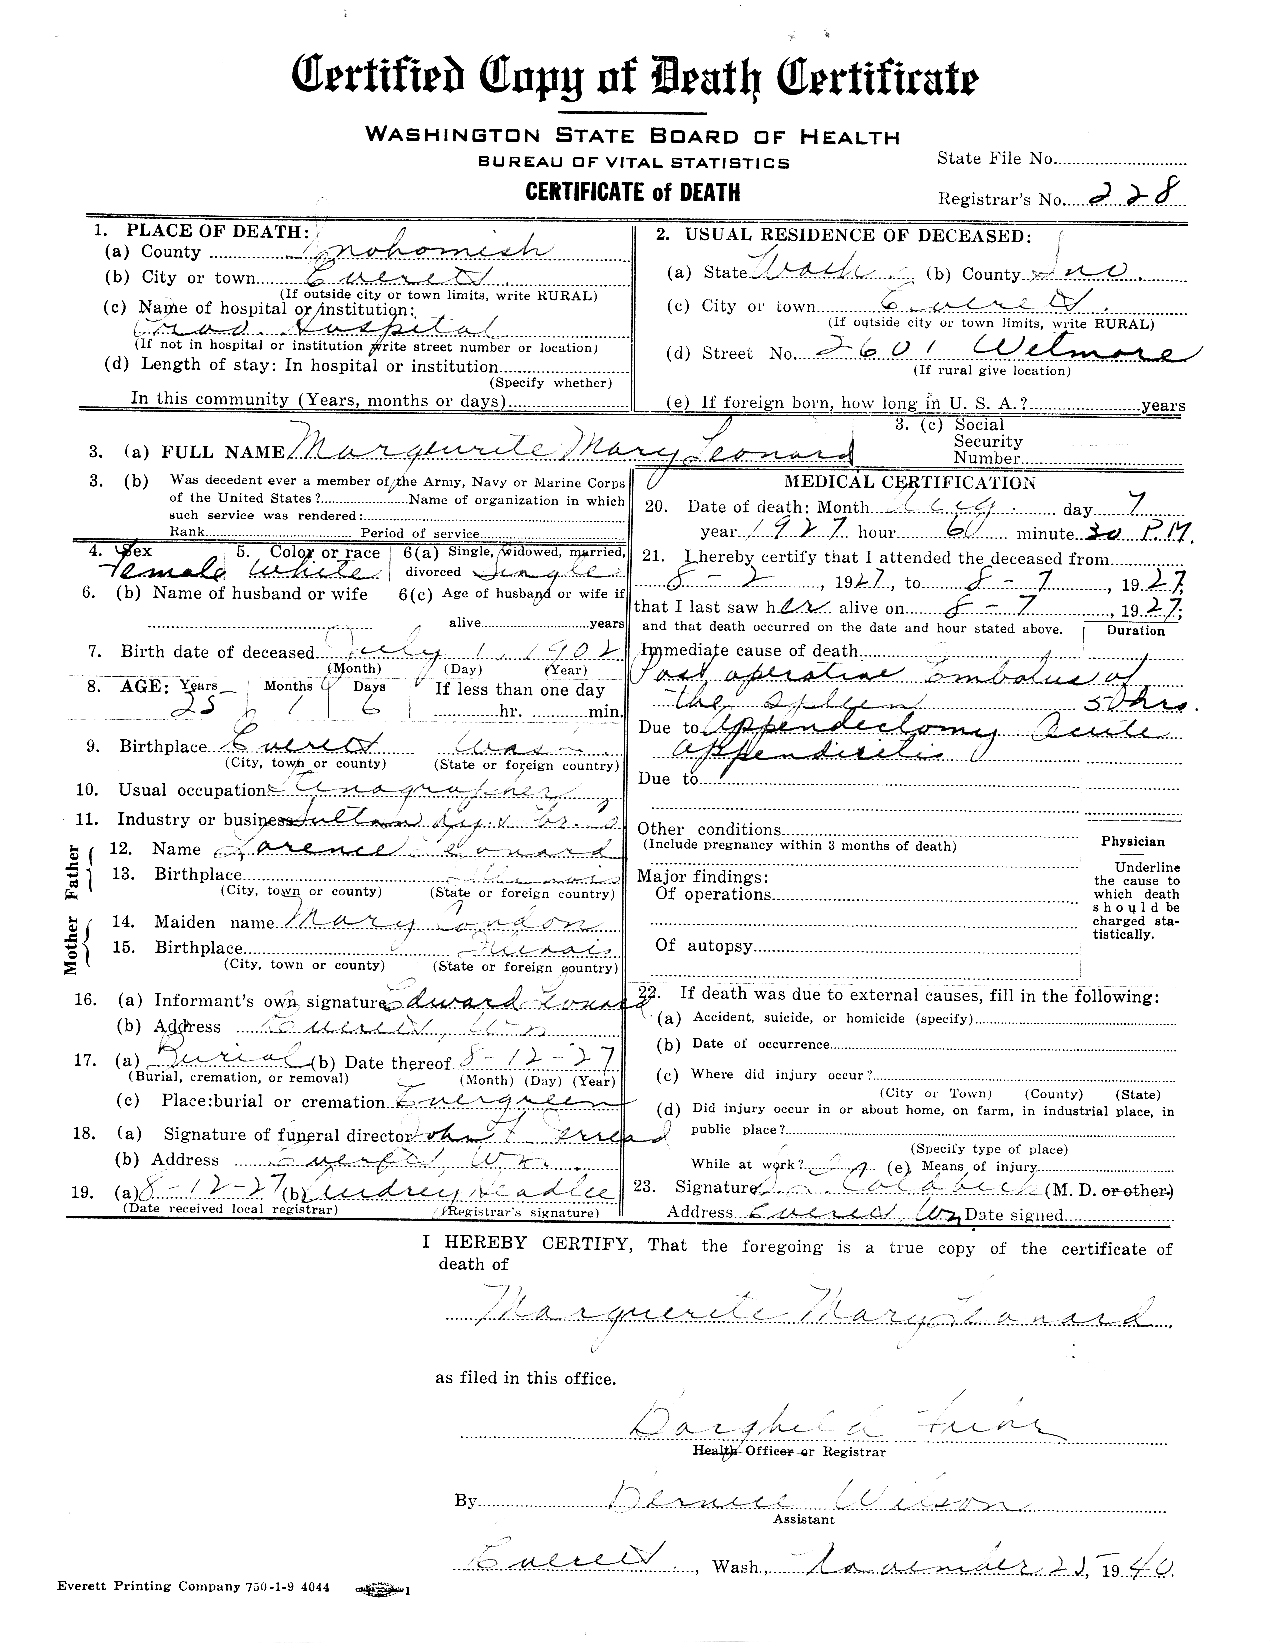 Certified Copy of Death Certificate
WASHINGTON STATE BOARD OF HEALTH
BUREAU OF VITAL STATISTICS
CERTIFICATE of DEATH
State File No.
Registrar's No. 228
1. PLACE OF DEATH:
(a) County Snohomish
(b) City or town Everett
(If outside city or town limits, write RURAL)
(c) Name of hospital or institution:
Hospital
(If not in hospital or institution write street number or location)
(d) Length of stay: In hospital or institution
(Specify whether)
In this community (Years, months or days)
2. USUAL RESIDENCE OF DECEASED:
(a) State Wash. (b) County Sno.
(c) City or town Everett
(If outside city or town limits, write RURAL)
(d) Street No. 2601 Wetmore
(If rural give location)
(e) If foreign born, how long in U. S. A.? years
3. (a) FULL NAME Marguerite Mary Leonard
3. (c) Social
Security
Number
3. (b) Was decedent ever a member of the Army, Navy or Marine Corps
of the United States? Name of organization in which
such service was rendered:
Rank Period of service
4. Sex 5. Color or race 6(a) Single, widowed, married,
Female White divorced Single
6. (b) Name of husband or wife 6(c) Age of husband or wife if
alive years
7. Birth date of deceased July 1, 1902
(Month) (Day) (Year)
8. AGE: Years Months Days If less than one day
25 1 6 hr. min.
9. Birthplace Everett Wash
(City, town or county) (State or foreign country)
10. Usual occupation Stenographer
11. Industry or business Sultan Ry. &
Father
12. Name Leonard
13. Birthplace Illinois
(City, town or county) (State or foreign country)
Mother
14. Maiden name Mary Condon
15. Birthplace Illinois
(City, town or county) (State or foreign country)
16. (a) Informant's own signature Edward Leonard
(b) Address Everett, Wn
17. (a) Burial (b) Date thereof 8-12-27
(Burial, cremation, or removal) (Month) (Day) (Year)
(c) Place: burial or cremation Evergreen
18. (a) Signature of funeral director John F. Jerread
(b) Address Everett, Wn.
19. (a) 8-12-27 (b) Audrey Headlee
(Date received local registrar) (Registrar's signature)
MEDICAL CERTIFICATION
20. Date of death: Month Aug. day 7
year 1927 hour 6 minute 30 P.M.
21. I hereby certify that I attended the deceased from
8-2, 1927, to 8-7, 1927,
that I last saw her alive on 8-7, 1927;
and that death occurred on the date and hour stated above. Duration
Immediate cause of death
Post operative Embolus of
the spleen 50 hrs.
Due to Appendectomy Acute
Appendicitis
Due to
Other conditions
(Include pregnancy within 3 months of death)
Major findings:
Of operations
Of autopsy
Physician
Underline
the cause to
which death
should be
charged sta-
tistically.
22. If death was due to external causes, fill in the following:
(a) Accident, suicide, or homicide (specify)
(b) Date of occurrence
(c) Where did injury occur?
(City or Town) (County) (State)
(d) Did injury occur in or about home, on farm, in industrial place, in
public place?
(Specify type of place)
While at work? (e) Means of injury
23. Signature Caldbick (M. D. or other)
Address Everett, Wn Date signed
I HEREBY CERTIFY, That the foregoing is a true copy of the certificate of
death of
Marguerite Mary Leonard
as filed in this office.
Borghild
Health Officer or Registrar
By Bernice Wilson
Assistant
Everett, Wash., November 25, 1940.
Everett Printing Company 750-1-9 4044